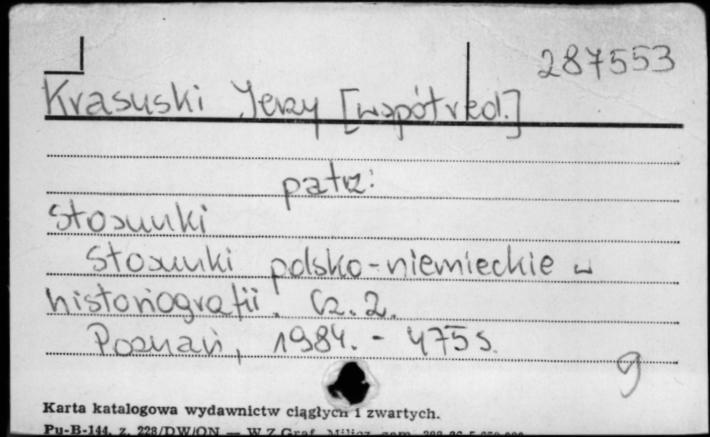 287553
Krasuski Jerzy [współred.]
patrz:
Stosunki
Stosunki polsko-niemieckie w
historiografii. Cz. 2.
Poznań, 1984. - 475 s.
9
Karta katalogowa wydawnictw ciągłych i zwartych.
Pu-B-144, z. 228/DW/ON — W.Z.Graf.